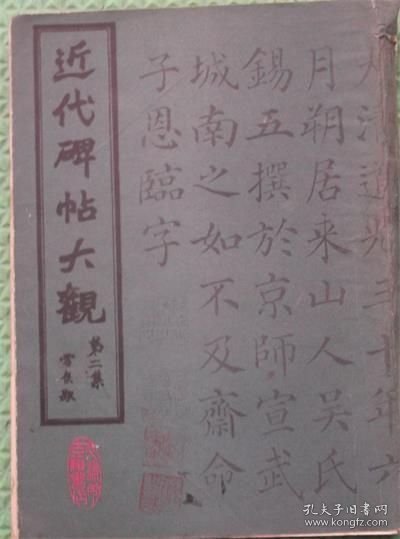 近代碑帖大觀
第二集
大清道光三十年六
月朔居來山人吳氏
錫五撰於京師宣武
城南之如不及齋命
子恩臨字
孔夫子旧书网
www.kongfz.com